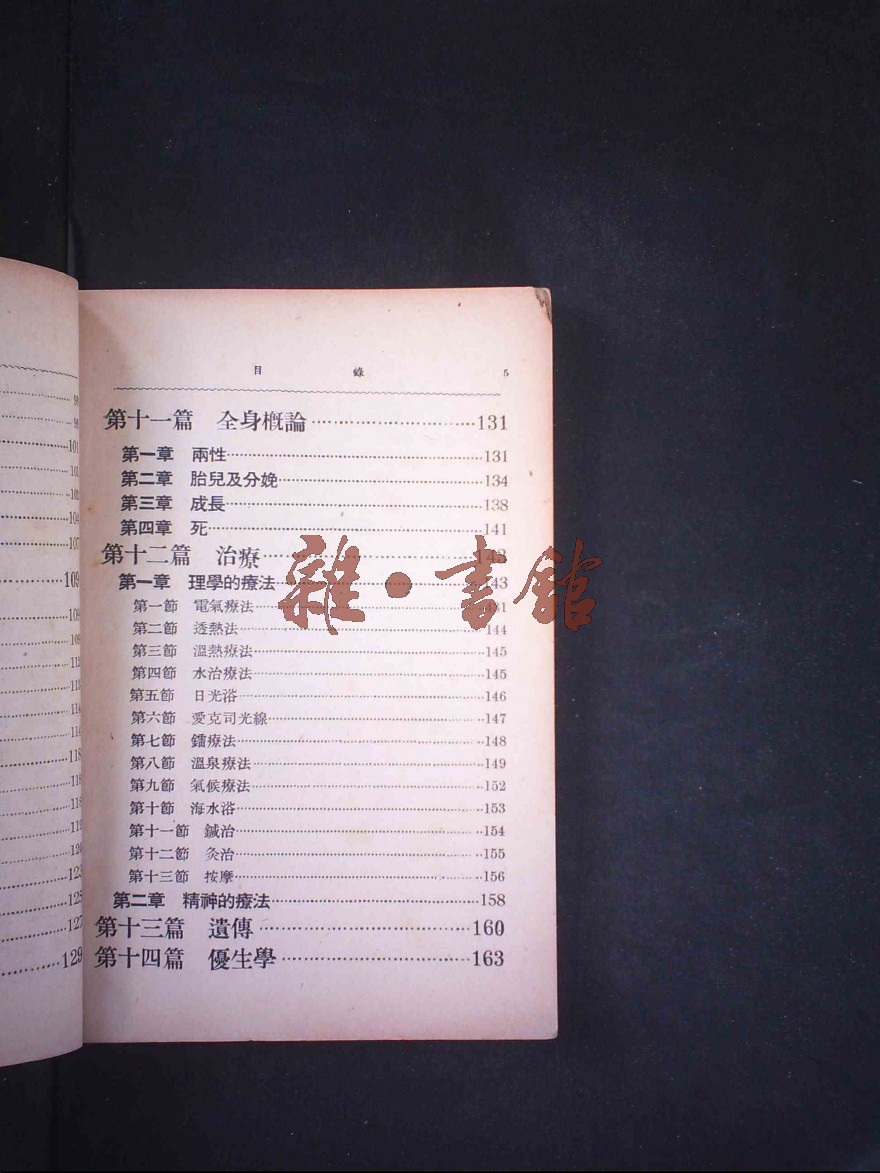 98
99
101
101
102
104
107
109
109
109
112
113
114
114
118
118
118
119
120
123
125
127
129
目 錄 5
第十一篇 全身概論 131
第一章 兩性 131
第二章 胎兒及分娩 134
第三章 成長 138
第四章 死 141
第十二篇 治療 143
第一章 理學的療法 143
第一節 電氣療法
第二節 透熱法 144
第三節 溫熱療法 145
第四節 水治療法 145
第五節 日光浴 146
第六節 愛克司光線 147
第七節 鐳療法 148
第八節 溫泉療法 149
第九節 氣候療法 152
第十節 海水浴 153
第十一節 鍼治 154
第十二節 灸治 155
第十三節 按摩 156
第二章 精神的療法 158
第十三篇 遺傳 160
第十四篇 優生學 163
雜·書館